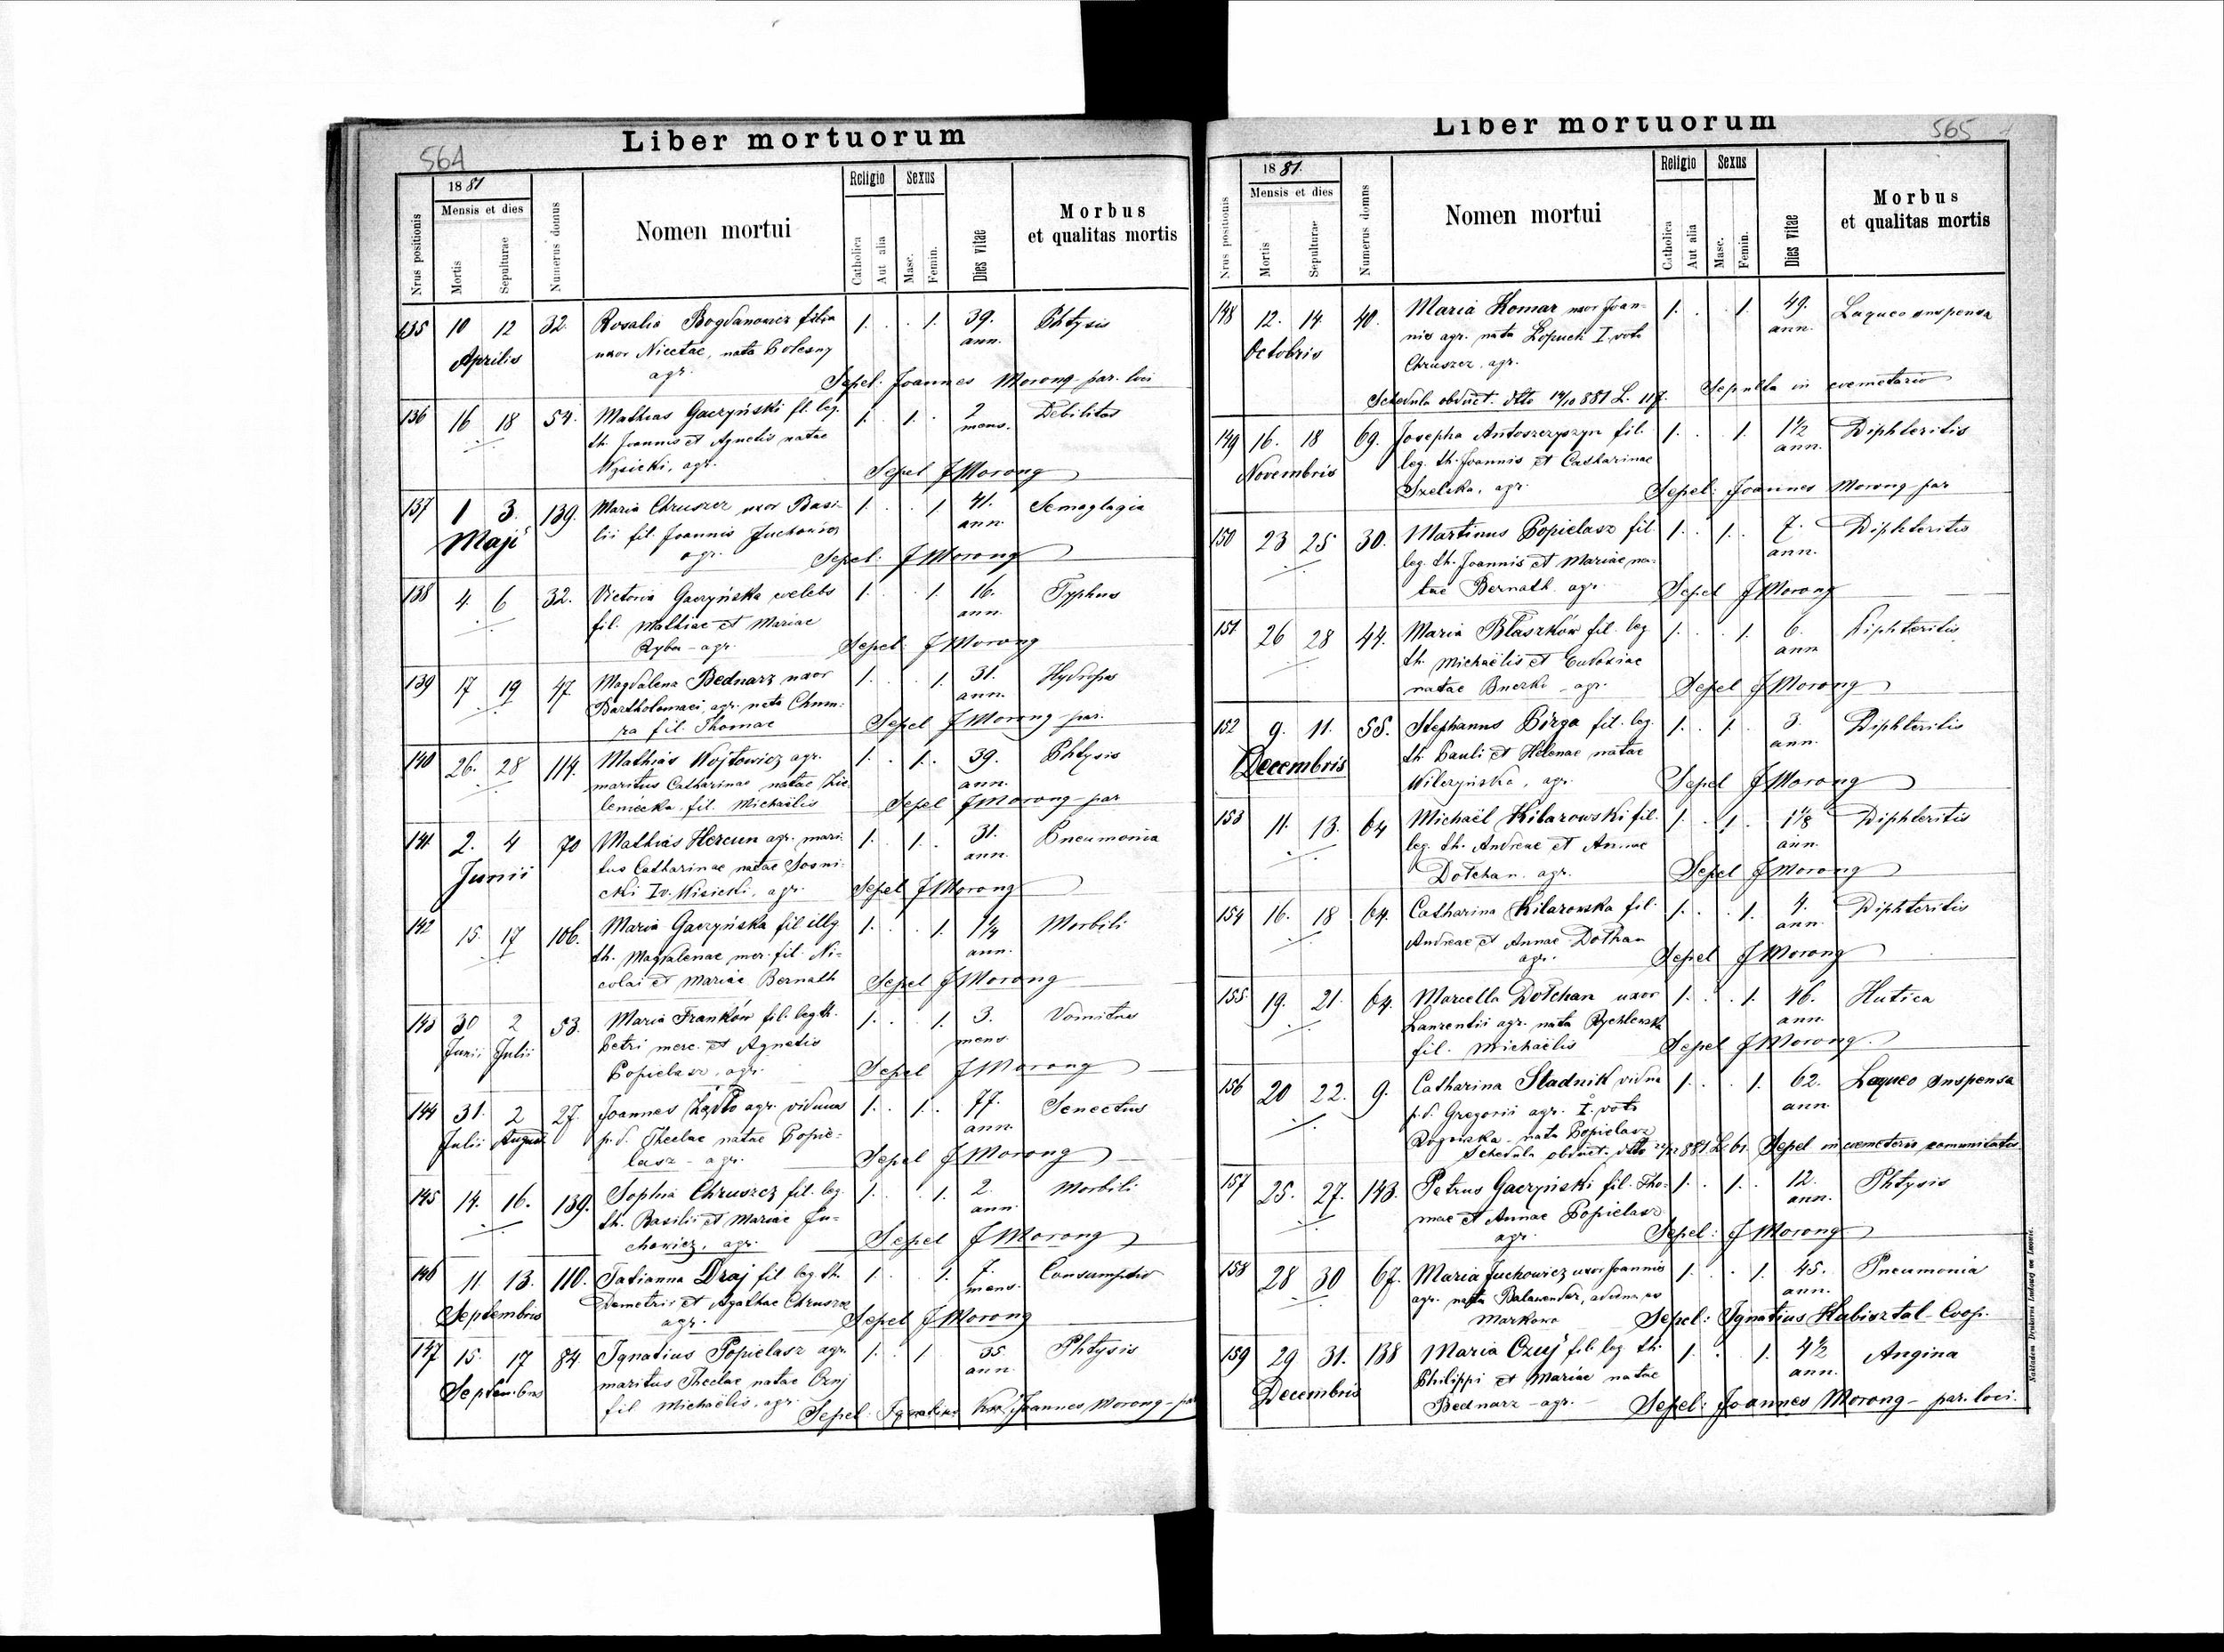 564
Liber mortuorum
Nrus positionis
1881
Mensis et dies
Mortis
Sepulturae
Numerus domus
Nomen mortui
Religio
Catholica
Aut alia
Sexus
Masc.
Femin.
Dies vitae
Morbus
et qualitas mortis
135 10 12 32. Rosalia Bogdanowicz filia 1. . . 1. 39. Phtysis
Aprilis uxor Nicetae, nata Bolesny ann.
agr. Sepel: Joannes Morong par. loci
136 16 18 54. Mathias Gaczyński fil. leg. 1. 1. . 2 Debilitas
th. Joannis et Agnetis natae mens.
Wysicki, agr. Sepel J Morong
137 1 3. 139. Maria Chruszcz uxor Basi- 1. . . 1 41.
Maji lii fil. Joannis Juchowicz ann.
agr. Sepel: J Morong
138 4. 6 32. Victoria Gaczyńska coelebs 1. . 1. 16. Typhus
fil. Mathiae et Mariae ann.
Ryba - agr. Sepel: J Morong
139 17 19 47. Magdalena Bednarz uxor 1. . 1. 31. Hydrops
Bartholomaei, agr. nata Chmu- ann.
ra fil. Thomae Sepel J Morong par.
140 26. 28 114. Mathias Wojtowicz agr. 1. . 1. . 39. Phtysis
maritus Catharinae natae Zie- ann.
leniecka, fil. Michaëlis Sepel J Morong - par
141 2. 4 70 Mathias Hercun agr. mari- 1. . 1. . 31. Pneumonia
Junii tus Catharinae natae Sosni- ann.
cki Iv. Wisicki, agr. Sepel J Morong
142 15. 17 106. Maria Gaczyńska fil illeg 1. . . 1. 1 1/4 Morbili
th. Magdalenae mer. fil. Ni- ann.
colai et Mariae Bernath Sepel J Morong
143 30 2 53. Maria Franków fil. leg. th. 1. . . 1. 3. Vomitus
Junii Julii Petri merc. et Agnetis mens.
Popielasz, agr. Sepel J Morong
144 31. 2 27. Joannes agr. viduus 1. . 1. . 77. Senectus
Julii August p. d. Theclae natae Popie- ann.
lasz - agr. Sepel J Morong
145 14. 16. 139. Sophia Chruszcz fil. leg. 1. . . 1. 2. Morbili
th. Basilii et Mariae Ju- ann.
chowicz, agr. Sepel J Morong
146 11 13. 110. Tatianna Draj fil leg. th. 1. . 1. 7. Consumptio
Septembris Demetrii et Agathae Chruszcz mens.
agr. Sepel J Morong
147 15. 17 84. Ignatius Popielasz agr. 1. . 1 35. Phtysis
Septembris maritus Theclae natae Czuj ann.
fil Michaëlis, agr. Sepel: Joannes Morong - par
565
Liber mortuorum
Nrus positionis
1881.
Mensis et dies
Mortis
Sepulturae
Numerus domns
Nomen mortui
Religio
Catholica
Aut alia
Sexus
Masc.
Femin.
Dies vitae
Morbus
et qualitas mortis
148 12. 14 40. Maria Komar uxor Joan- 1. . . 1. 49. Laqueo suspensa
Octobris nis agr. nata Łopuch I. voto ann.
Chruszcz, agr.
Schedula obduct. dtto 14/10 881 L. 117. Sepulta in coemetario
149 16. 18 69. Josepha Antoszczyszyn fil. 1. . 1. 1 1/2 Diphteritis
Novembris leg. th. Joannis et Catharinae ann.
Szelska, agr. Sepel: Joannes Morong par
150 23 25 30. Martinus Popielasz fil. 1. . 1. . 7. Diphteritis
leg. th. Joannis et Mariae na- ann.
tae Bernath. agr. Sepel J Morong
151 26 28 44. Maria Błaszków fil. leg 1. . . 1. 6. Diphteritis
th. Michaëlis et Eudoxiae ann
natae - agr. Sepel J Morong
152 9. 11. 55. Stephanus Borga fil. leg. 1. . 1. . 3. Diphteritis
Decembris th. Pauli et Helenae natae ann.
Wilczyńska, agr. Sepel J Morong
153 11. 13. 64 Michaël Kilarowski fil. 1. . 1. . 1 1/8 Diphteritis
leg. th. Andreae et Annae ann.
Dołhan. agr. Sepel J Morong
154 16. 18 64. Catharina Kilarowska fil. 1. . . 1. 4. Diphteritis
Andreae et Annae Dołhan ann.
agr. Sepel J Morong
155. 19. 21. 64. Marcella Dołhan uxor 1. . . 1. 46. Hutica
Laurentii agr. nata Rychlewska ann.
fil. Michaëlis Sepel J Morong.
156 20 22. 9. Catharina Sładnik vidua 1. . . 1. 62. Laqueo suspensa
p. d. Gregorii agr. I. voto ann.
Rogowska - nata Popielasz
Schedula obduct. dtto 22/12 881. L. 61. Sepel in coemeterio comunitatis.
157 25. 27. 143. Petrus Gaczyński fil. Tho- 1. . 1. . 12. Phtysis
mae et Annae Popielasz ann.
agr. Sepel: J Morong
158 28 30 67. Maria Juchowicz uxor Joannis 1. . . 1. 45. Pneumonia
agr. nata Balawender, advena ex ann.
Markowa Sepel: Ignatius Habisztal - Coop.
159 29 31. 138 Maria Czuj fil. leg th. 1. . 1. 4 1/2 Angina
Decembris Philippi et Mariae natae ann.
Bednarz - agr. - Sepel: Joannes Morong - par. loci.
Nakładem Drukarni Ludowej we Lwowie.